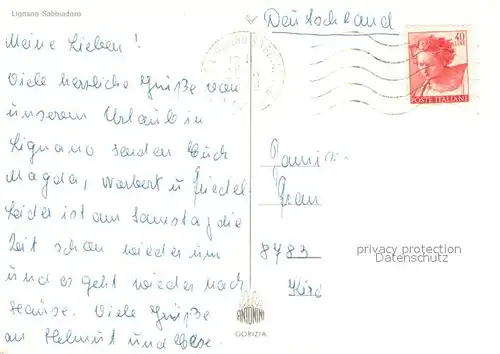 Lignano Sabbiadoro
Deutschland
40
POSTE ITALIANE
Meine Lieben!
Viele herzliche Grüße von
unserem Urlaub in
Lignano senden Euch
Magda, Norbert u Friedel
Leider ist am Samstag die
Zeit schon wieder um
und es geht wieder nach
Hause. Viele Grüße
an Helmut und Else.
Frau
8783
privacy protection
Datenschutz
ANTONINI
GORIZIA